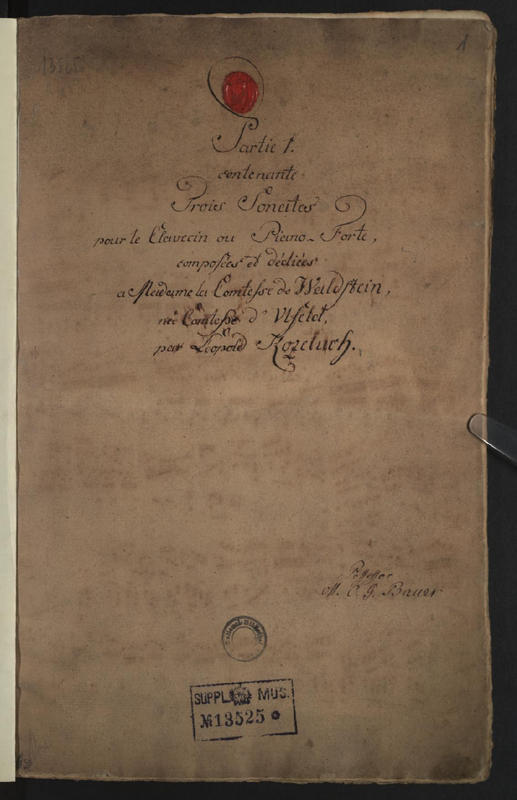 13525
1
Partie 1.
contenante
Trois Sonates
pour le Clavecin ou Piano-Forte,
composées et dédiées
a Madame la Comtesse de Waldstein,
née Comtesse d'Ulfeld,
par Léopold Kozeluch.
Possessor
C. J. Bauer
SUPPL. MUS.
№ 13525